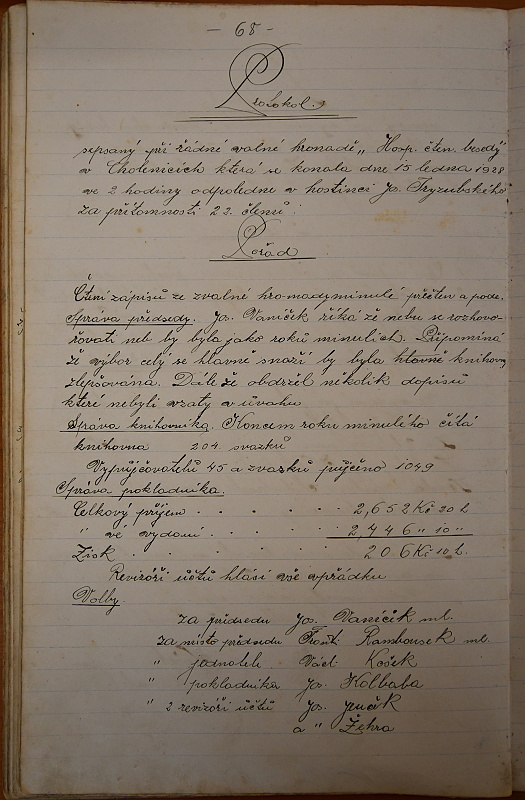 - 68 -
Protokol.
sepsaný při řádné valné hromadě „Hosp. čten. besedy"
v Cholenicích která se konala dne 15 ledna 1928
ve 2 hodiny odpoledne v hostinci Jos. Tryzubského
za přítomnosti 22. členů:
Pořad
Čtení zápisů ze zvalné hromady minulé přečten a pode.
Správa předsedy. Jos. Vaníček říká že nebu se rozhovo-
řovati neb by byla jako roků minulích. Připomíná
že výbor celý se hlavně snaží by byla hlavně knihovna
zlepšována. Dále že obdržel několik dopisů
které nebyli vzaty v úvahu
Správa knihovníka. Koncem roku minulího čítá
knihovna 204. svazků
Vypůjčovatelů 45 a svazků půjčeno 1049
Správa pokladníka.
Celkový příjem . . . . . 2,652 Kč 20 h
" ve vydání . . . . 2,446 " 10 "
Zisk . . . . . 206 Kč 10 h.
Revizoři účtů hlásí vše vpřádku
Volby.
Za předsedu Jos. Vaníček ml.
Za místo předsedu Frant. Rambousek ml.
" jednatele Václ. Košek
" pokladníka Jos. Kolbaba
" 2 revizoři účtů Jos. Jenčík
a " Žehra